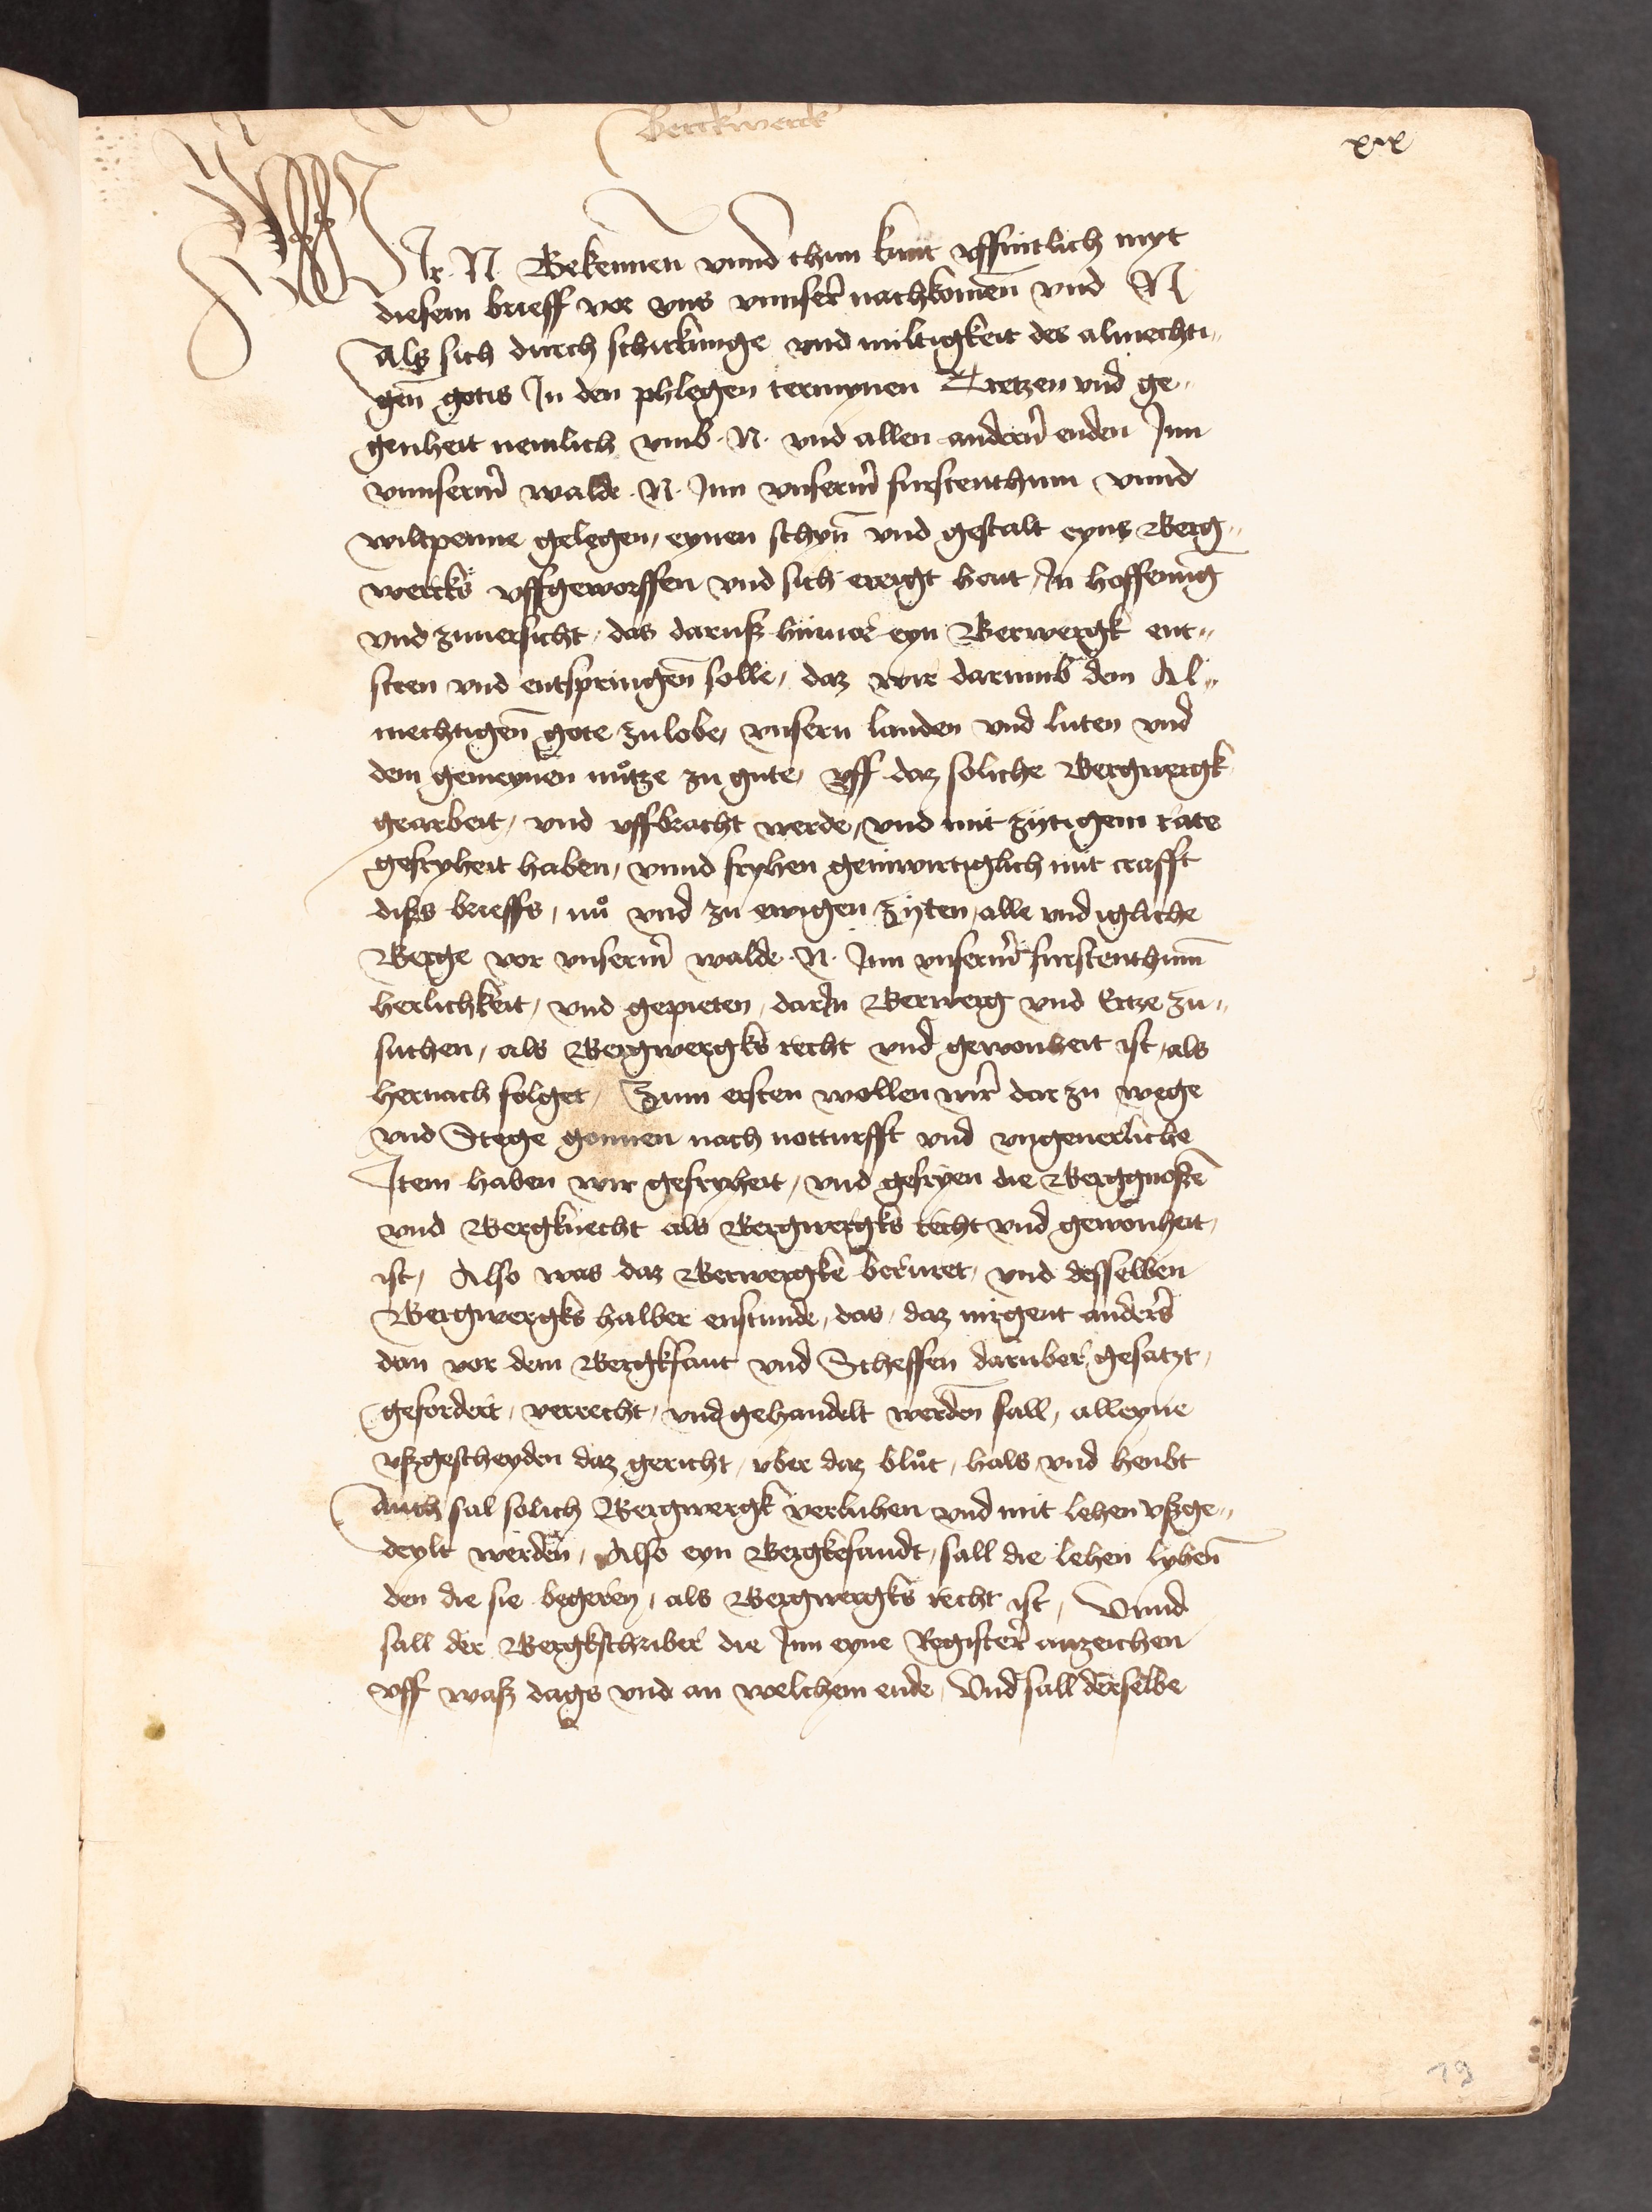 berckwerck
xix
WIr. N. Bekennen vnnd thun kunt vffintlich myt
diesem brieff vor vns vnnser nachkomen vnd N
Als sich durch schickunge vnd miltigkeit des almechti„
gen gotis In den phlegen termynen Kretzen vnd ge„
genheit nemlich vmb .N. vnd allen andern enden Inn
vnnserm walde .N. Inn vnserm furstenthum vnnd
wiltpenne gelegen, eynen schyn vnd gestalt eyns Berg„
wercks vffgeworffen vnd sich ereigt hait, In hoffenung
vnd zuuersicht, das daruß hinuor eyn Berwergk ent„
steen vnd entspringen solle, daz wir darumb dem Al„
mechtigen gote zulobe, vnsern landen vnd luten vnd
dem gemeynen nůtze zu gute, vff daz soliche Bergwergk
gearbeit, vnd vffbracht werde, vnd mit zijtigem rate
gefryheit haben, vnnd fryhen geinwirtiglich mit crafft
dißs brieffs, nů vnd zu ewigen zijten, alle vnd igliche
Berge vor vnserm walde .N. Inn vnserm furstenthum
herlichkeit, vnd gepieten, darIn Berwerg vnd Ertze zu„
suchen, als Bergwergks recht vnd gewonheit ist, als
hernach folget, Zum ersten wollen wir dar zu wege
vnd Stege gonnen nach notturfft vnd vngeuerliche
Item haben wir gefryheit, vnd gefryen die Berggnoßen
vnd Bergknecht als Bergwergks recht vnd gewonheit,
ist, Also was daz Berwergke beruret, vnd desselben
Bergwergks halber enstunde, das, daz nirgent anders
dan vor dem Bergkfaut vnd Scheffen daruber gesatzt,
gefordert, verrecht, vnd gehandelt werden sall, alleyne
vßgescheyden daz gericht, vber daz blůt, hals vnd heubt
Auch sal solich Bergwergk verluhen vnd mit lehen vßge„
deylt werden, Also eyn Bergkefaudt, sall die lehen lyhen
den die sie begeren, als Bergwergks recht ist, Vnnd
sall der Bergkschriber die Inn eyne Register anzeichen
vff waß dags vnd an welchem ende, Vnd sall derselbe
19